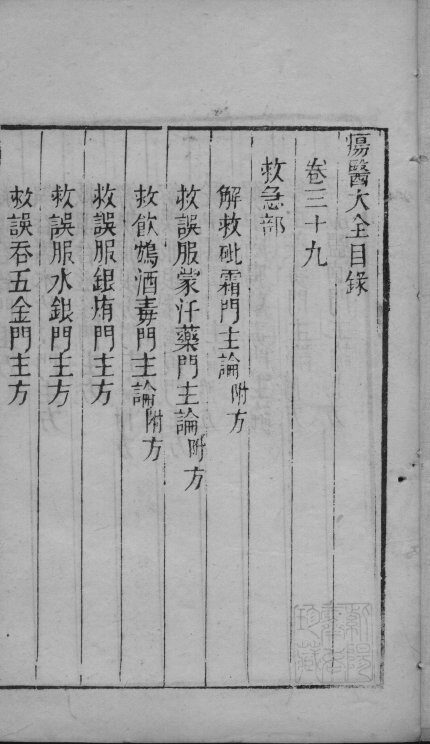 瘍醫大全目錄
卷三十九
救急部
解救砒霜門主論附方
救誤服蒙汗藥門主論附方
救飲鴆酒毒門主論附方
救誤服銀㶽門主方
救誤服水銀門主方
救誤吞五金門主方